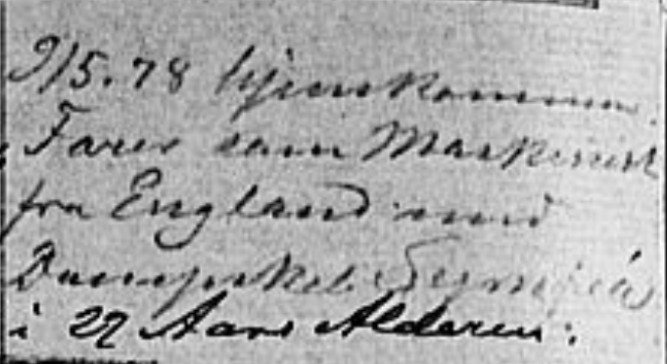 9/5.78 hjemkommen.
Farer som Maskinist
fra England med
Dampskib Olympia
i 27 Aars Alderen.